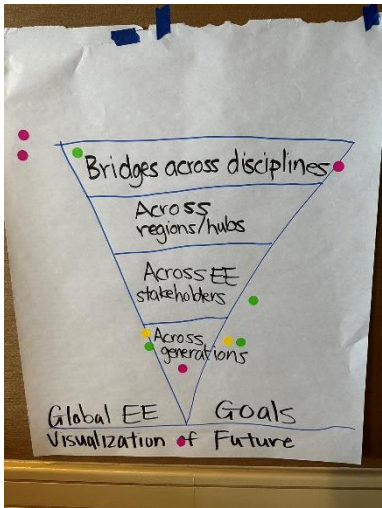 Bridges across disciplines
Across
regions/hubs
Across EE
stakeholders
Across
generations
Global EE Goals
Visualization of Future